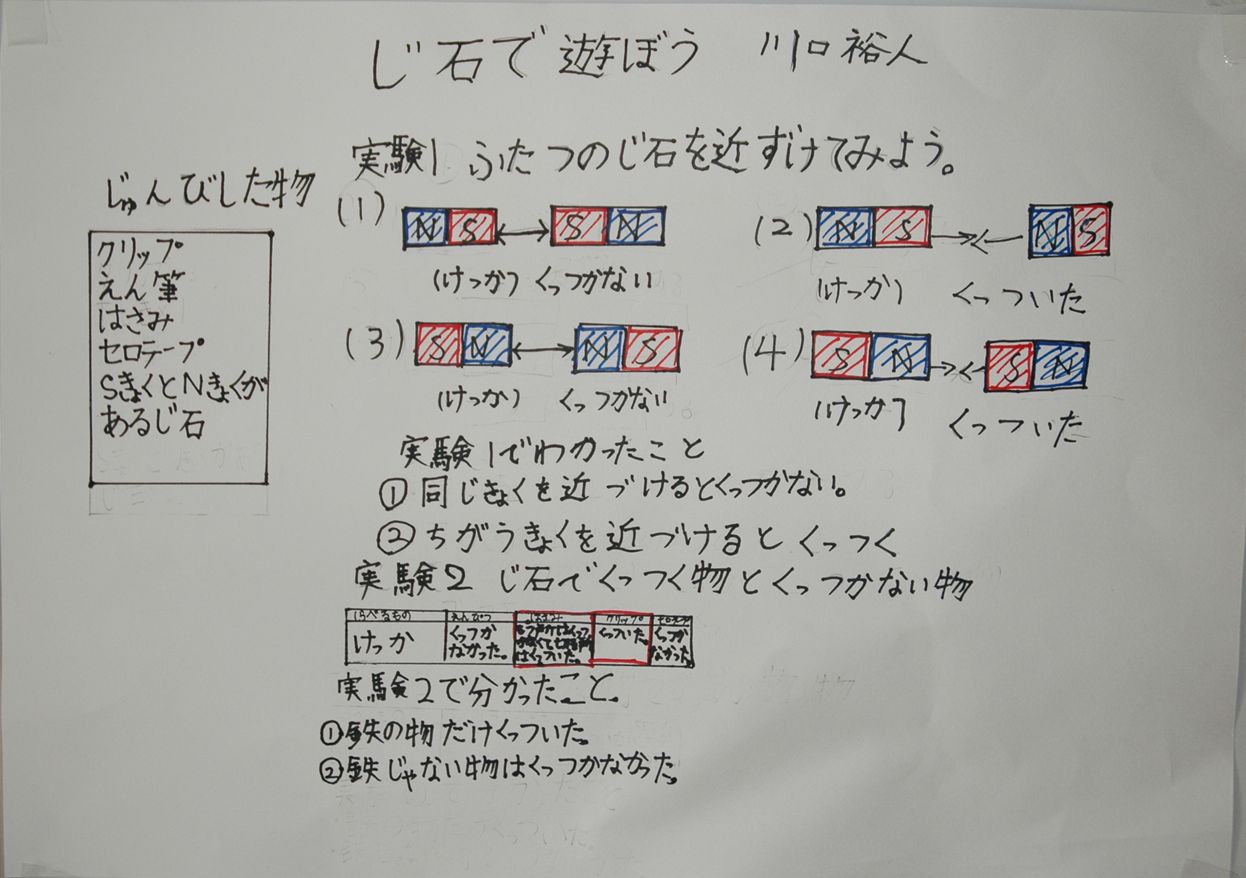 じ石で遊ぼう 川口裕人
じゅんびした物
クリップ
えん筆
はさみ
セロテープ
SきょくとNきょくが
あるじ石
実験1. ふたつのじ石を近ずけてみよう。
(1) N S S N
(けっか) くっつかない
(2) N S N S
(けっか) くっついた
(3) S N N S
(けっか) くっつかない
(4) S N S N
(けっか) くっついた
実験1でわかったこと
①同じきょくを近づけるとくっつかない。
②ちがうきょくを近づけるとくっつく
実験2 じ石でくっつく物とくっつかない物
しらべるもの えんぴつ はさみ クリップ セロテープ
けっか
くっつか
なかった。
はくっついた。
くっついた。
くっつか
なかった
実験2で分かったこと。
①鉄の物だけくっついた。
②鉄じゃない物はくっつかなかった。